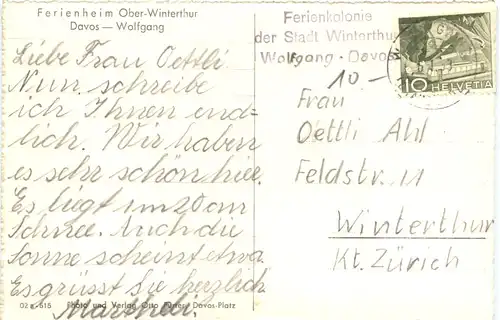 Ferienheim Ober-Winterthur
Davos — Wolfgang
Liebe Frau Oettli
Nun schreibe
ich Ihnen end-
lich. Wir haben
es sehr schön hier.
Es liegt im 20 cm
Schnee. Auch die
Sonne scheint etwa.
Es grüsst Sie herzlich
Martheli.
02 a-815 Photo und Verlag Otto Furter, Davos-Platz
Ferienkolonie
der Stadt Winterthur
Wolfgang - Davos
10 HELVETIA
10 -
Frau
Oettli Ahl
Feldstr. 11
Winterthur
Kt. Zürich